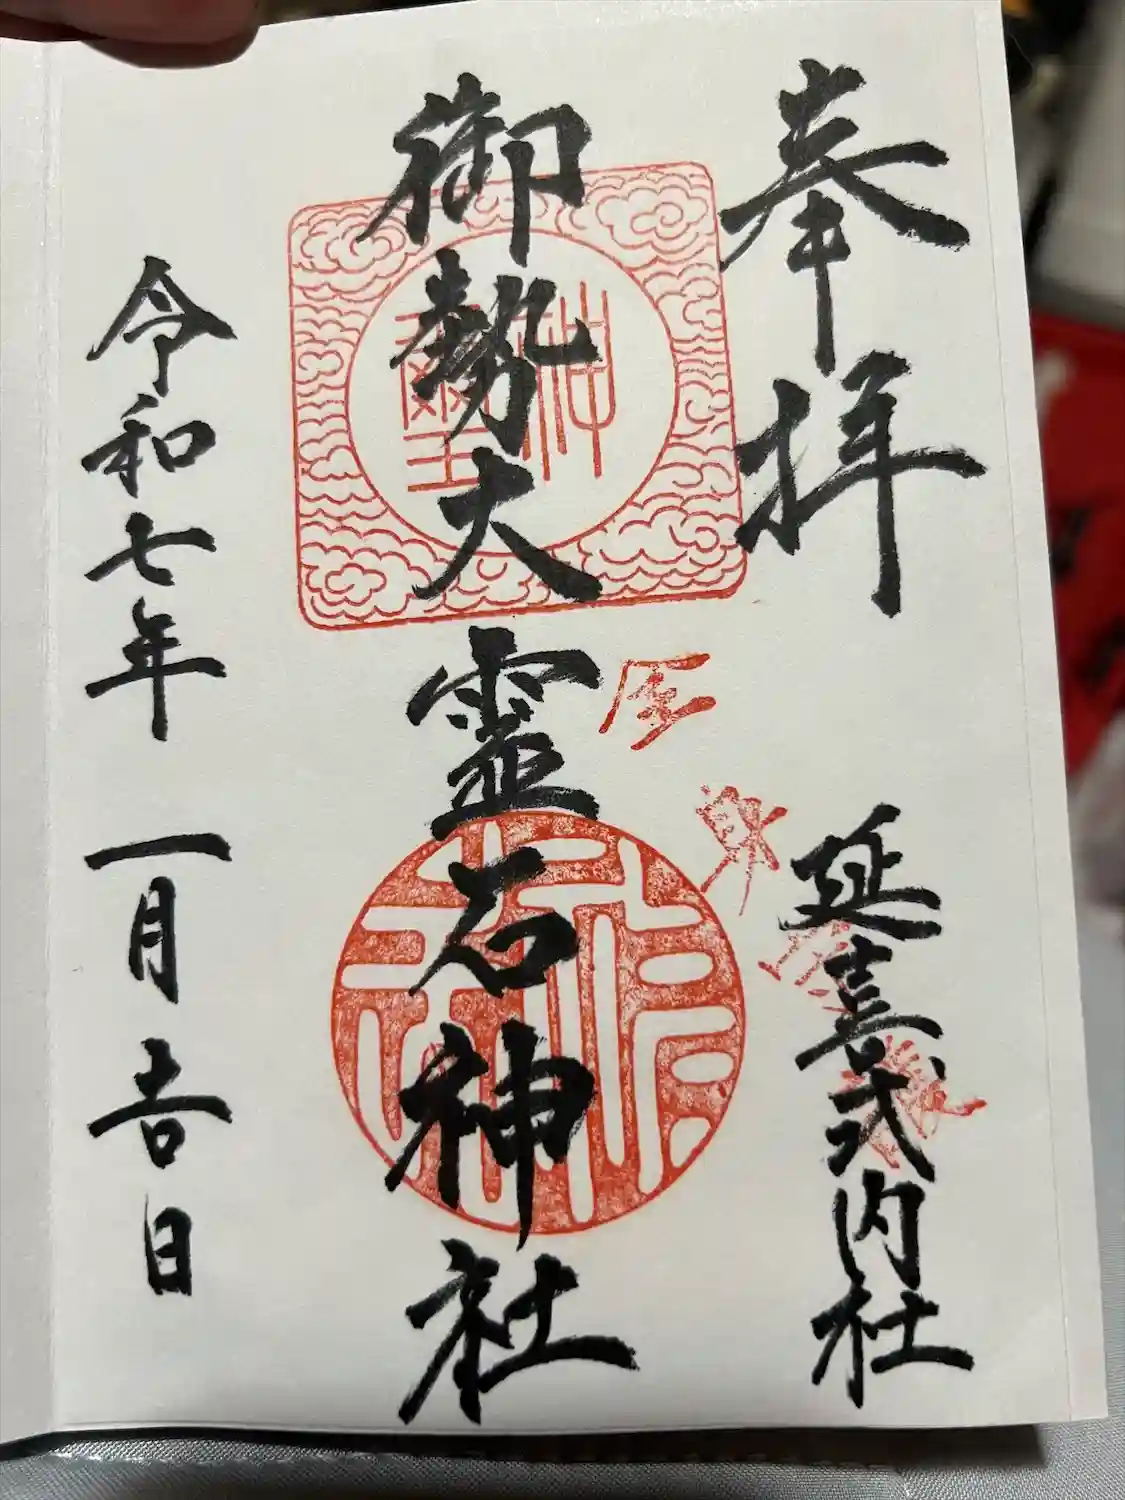 奉拝
延喜式内社
御勢大霊石神社
令和七年 一月吉日